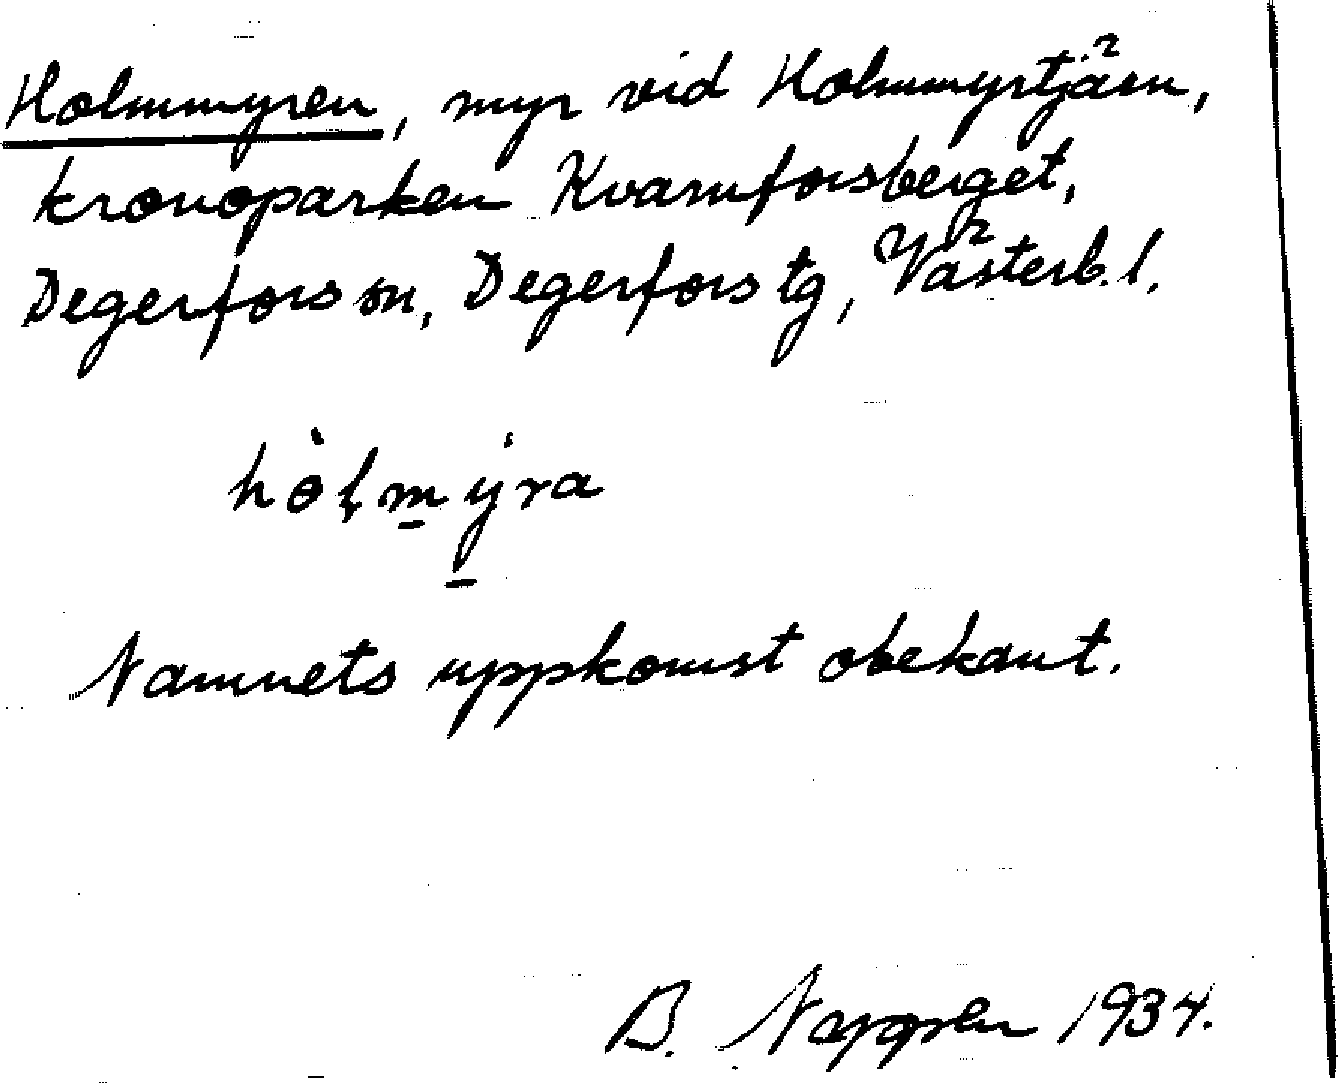 Holmmyren, myr vid Holmmyrtjärn,
kronoparken Kvarnforsberget,
Degerfors sn, Degerfors tg, Västerb. l.
hòlmýra
Namnets uppkomst obekant.
B. 1934.